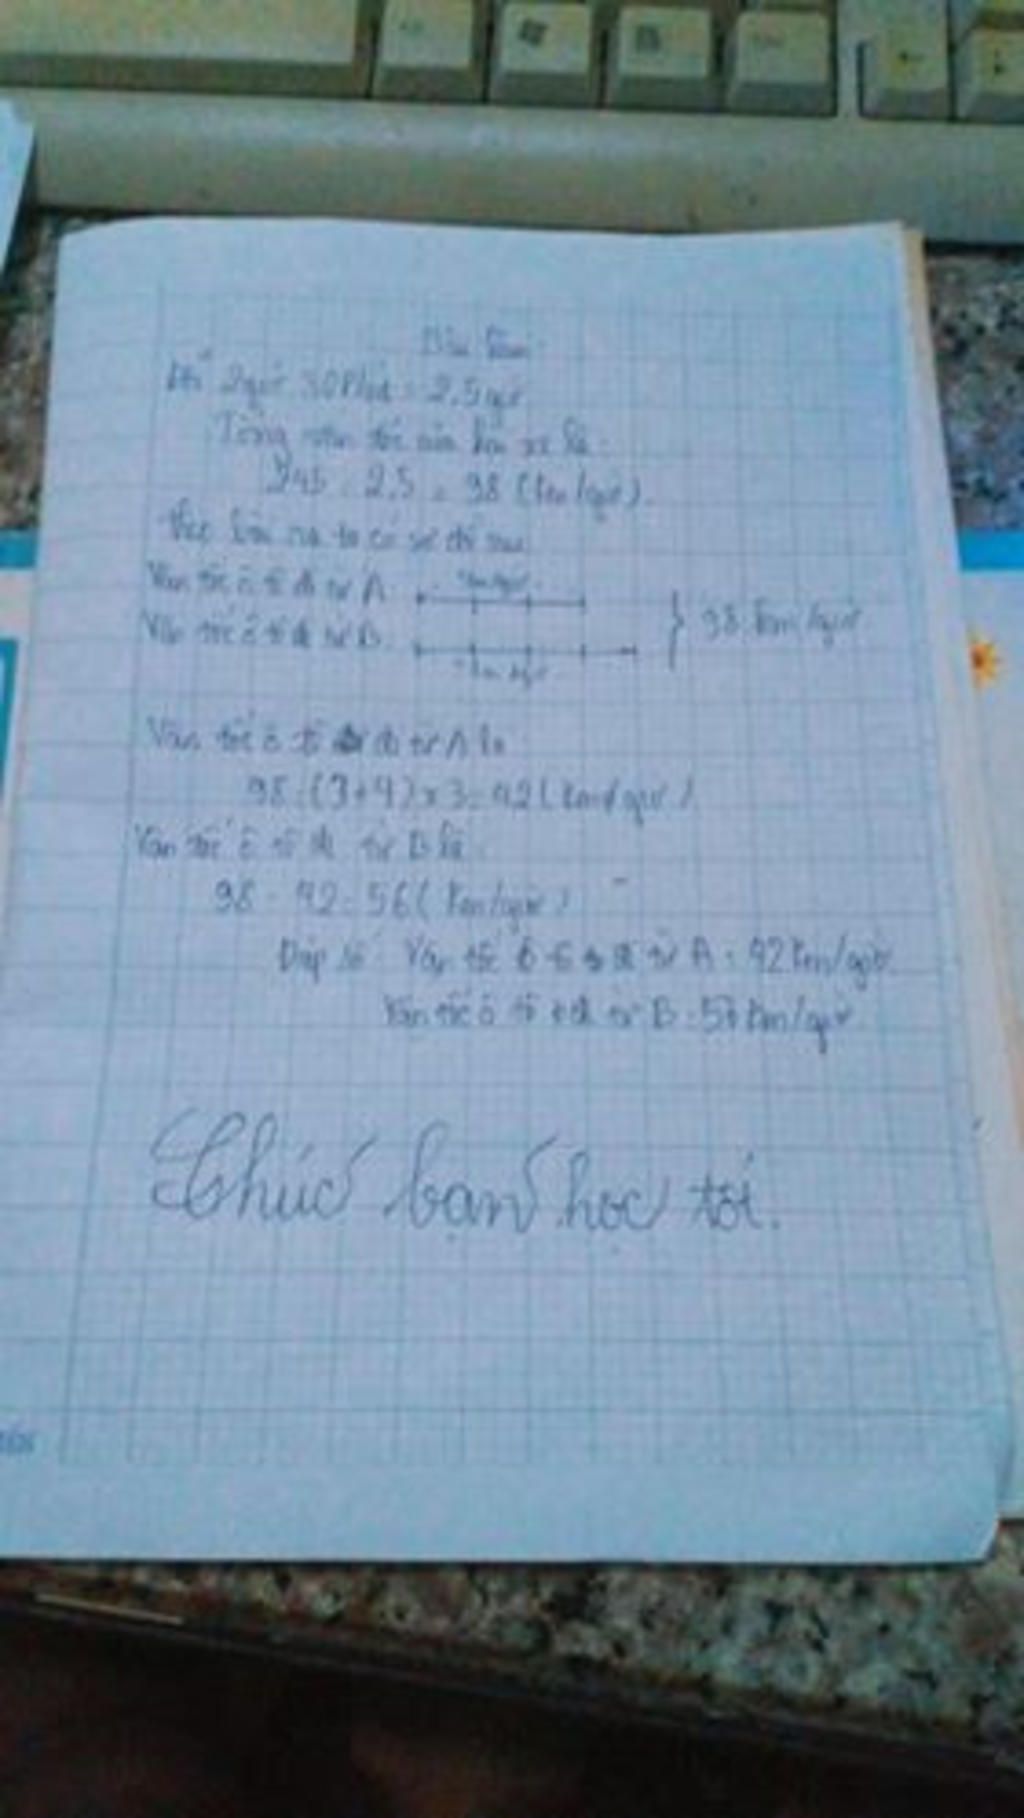 Bài làm
Đổi 2 giờ 30 Phút = 2,5 giờ
Tổng vận tốc của hai xe là:
245 : 2,5 = 98 (km/giờ).
ta có sơ đồ sau
Vận tốc ô tô đi từ A
98 km/giờ
Vận tốc ô tô đi từ B
Vận tốc ô tô đi từ A là
98 : (3+4) x 3 = 42 (km/giờ)
Vận tốc ô tô đi từ B là
98 - 42 = 56 (km/giờ)
Đáp số Vận tốc ô tô đi từ A : 42 km/giờ
Vận tốc ô tô đi từ B : km/giờ
Chúc bạn học tốt.